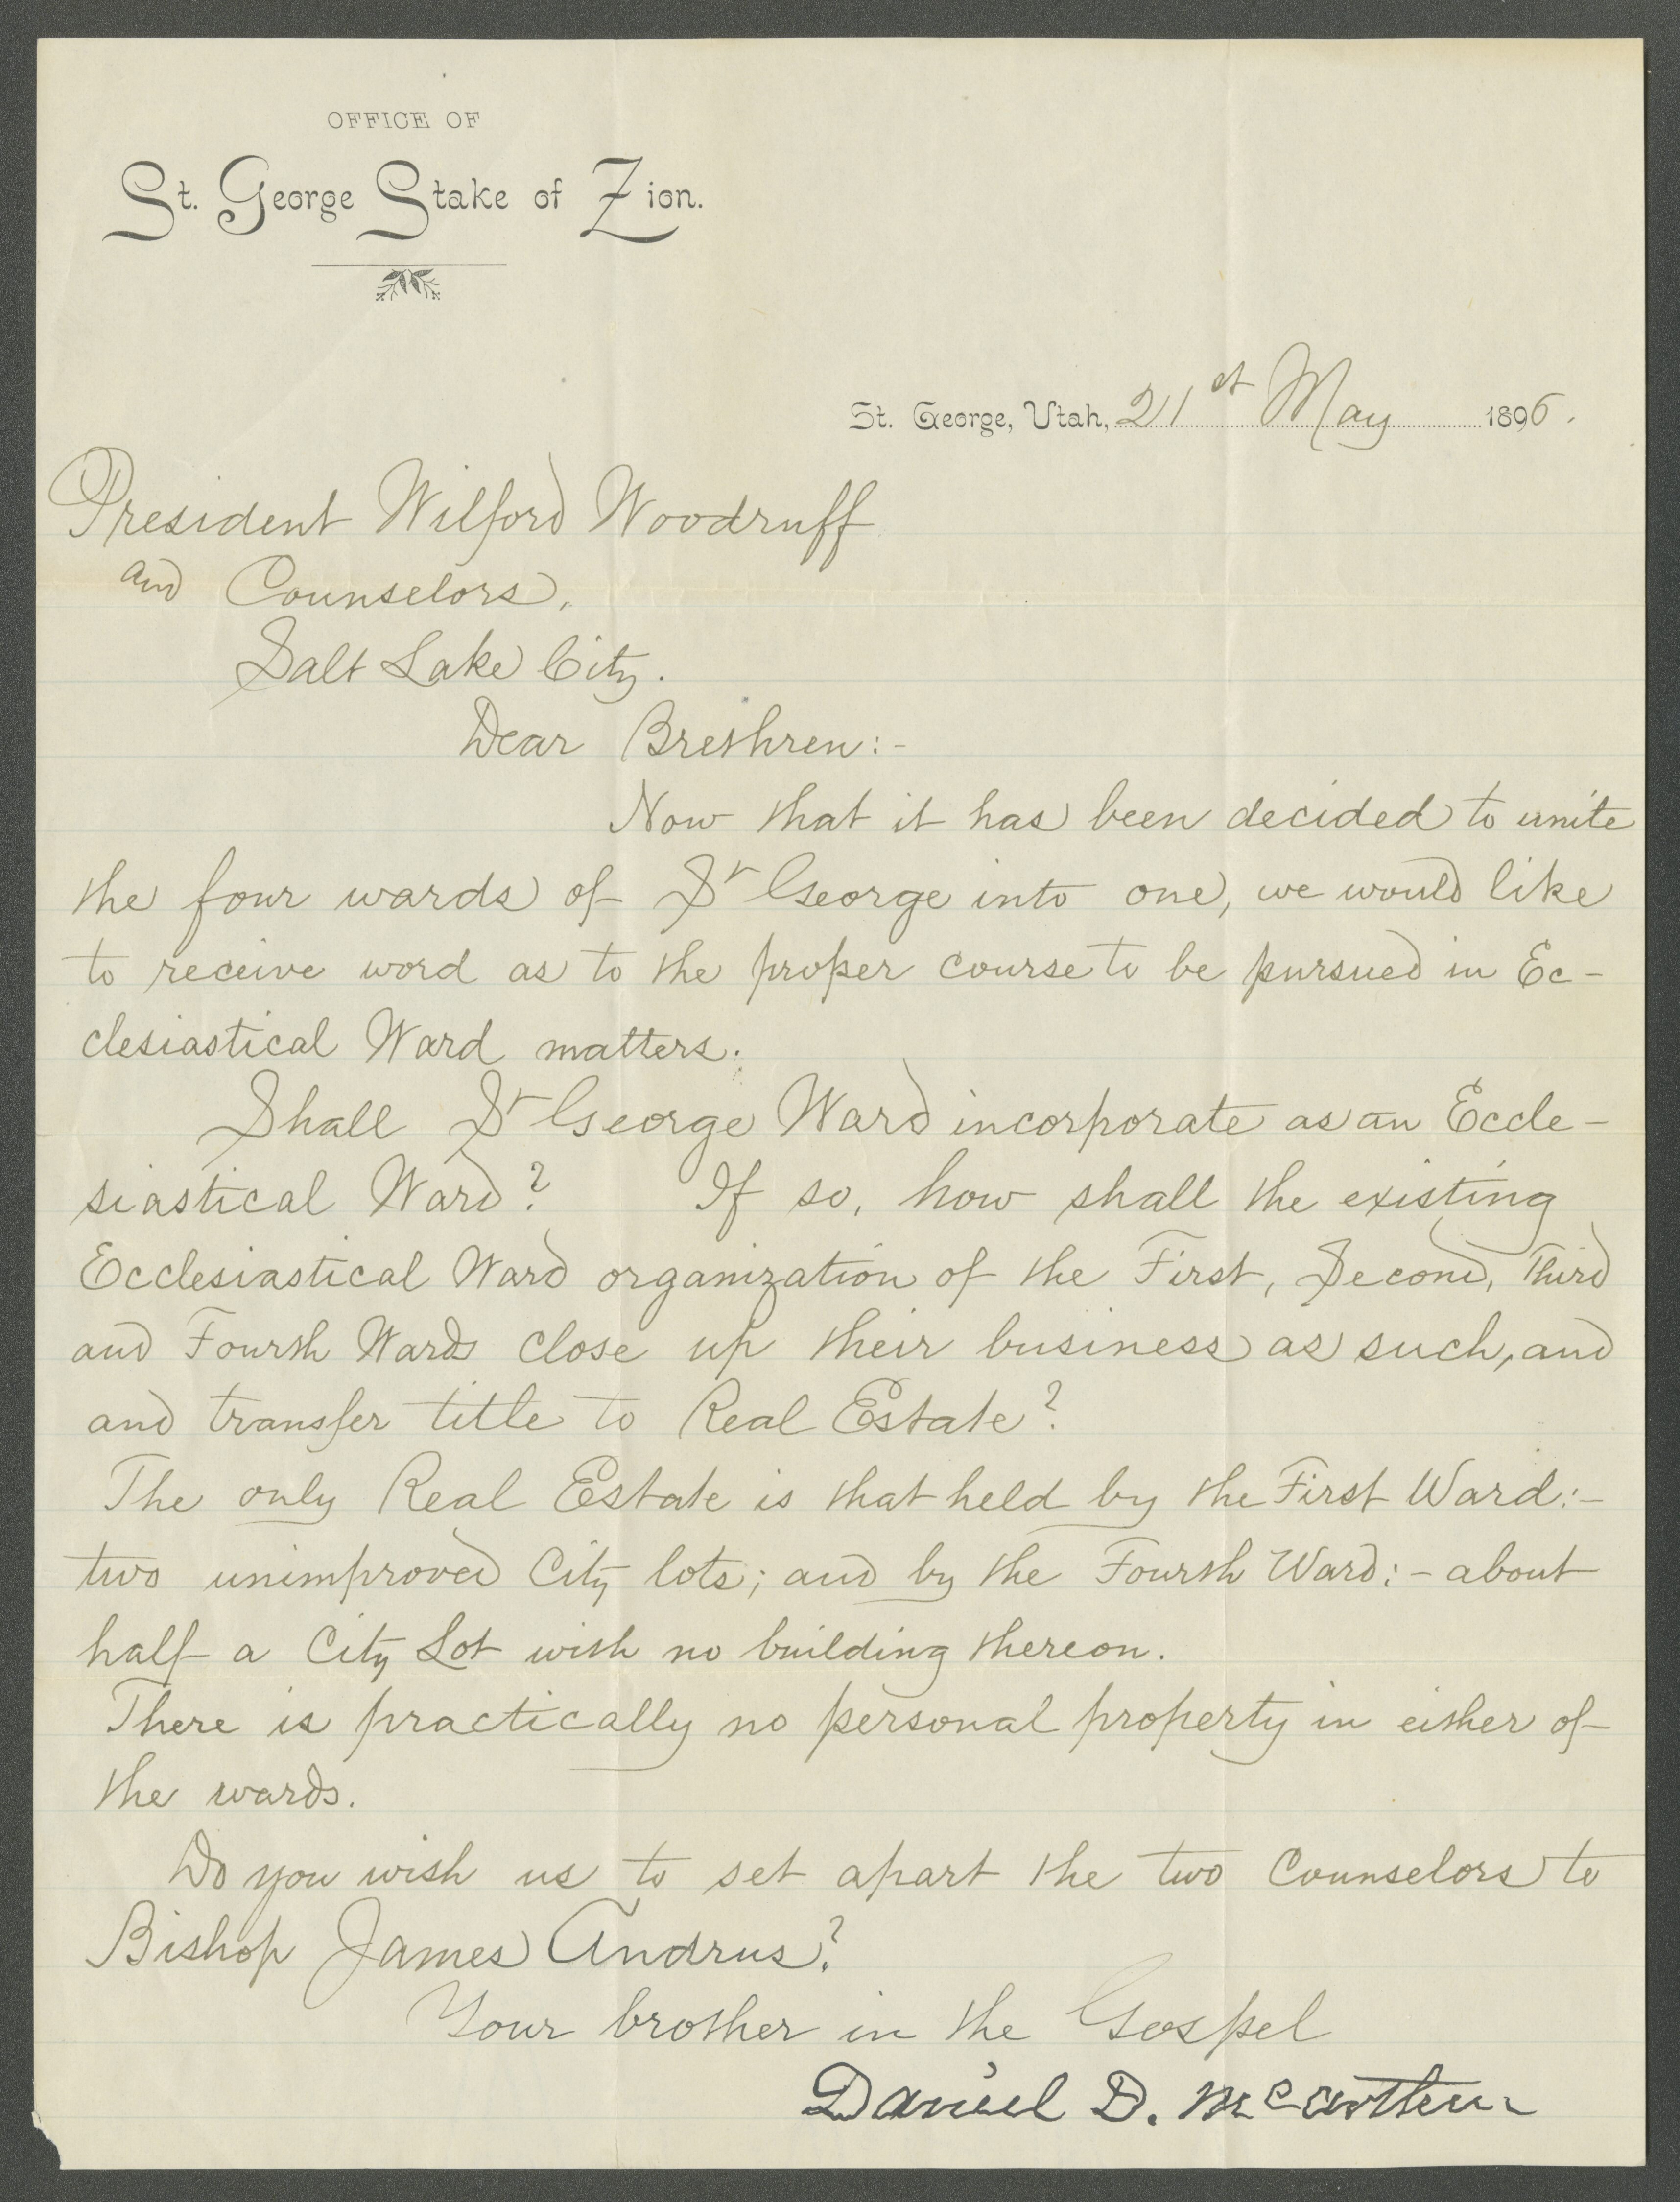 OFFICE OF
St. George Stake of Zion.
St. George, Utah, 21st May 1896.
President Wilford Woodruff
and Counselors,
Salt Lake City.
Dear Brethren:-
Now that it has been decided to unite
the four wards of St George into one, we would like
to receive word as to the proper course to be pursued in Ec-
clesiastical Ward matters.
Shall St George Ward incorporate as an Eccle-
siastical Ward? If so, how shall the existing
Ecclesiastical Ward organization of the First, Second, Third
and Fourth Wards close up their business as such, and
and transfer title to Real Estate?
The only Real Estate is that held by the First Ward:-
two unimproved City lots; and by the Fourth Ward:- about
half a City Lot with no building thereon.
There is practically no personal property in either of
the wards.
Do you wish us to set apart the two Counselors to
Bishop James Andrus?
Your brother in the Gospel
Daniel D. McArthur